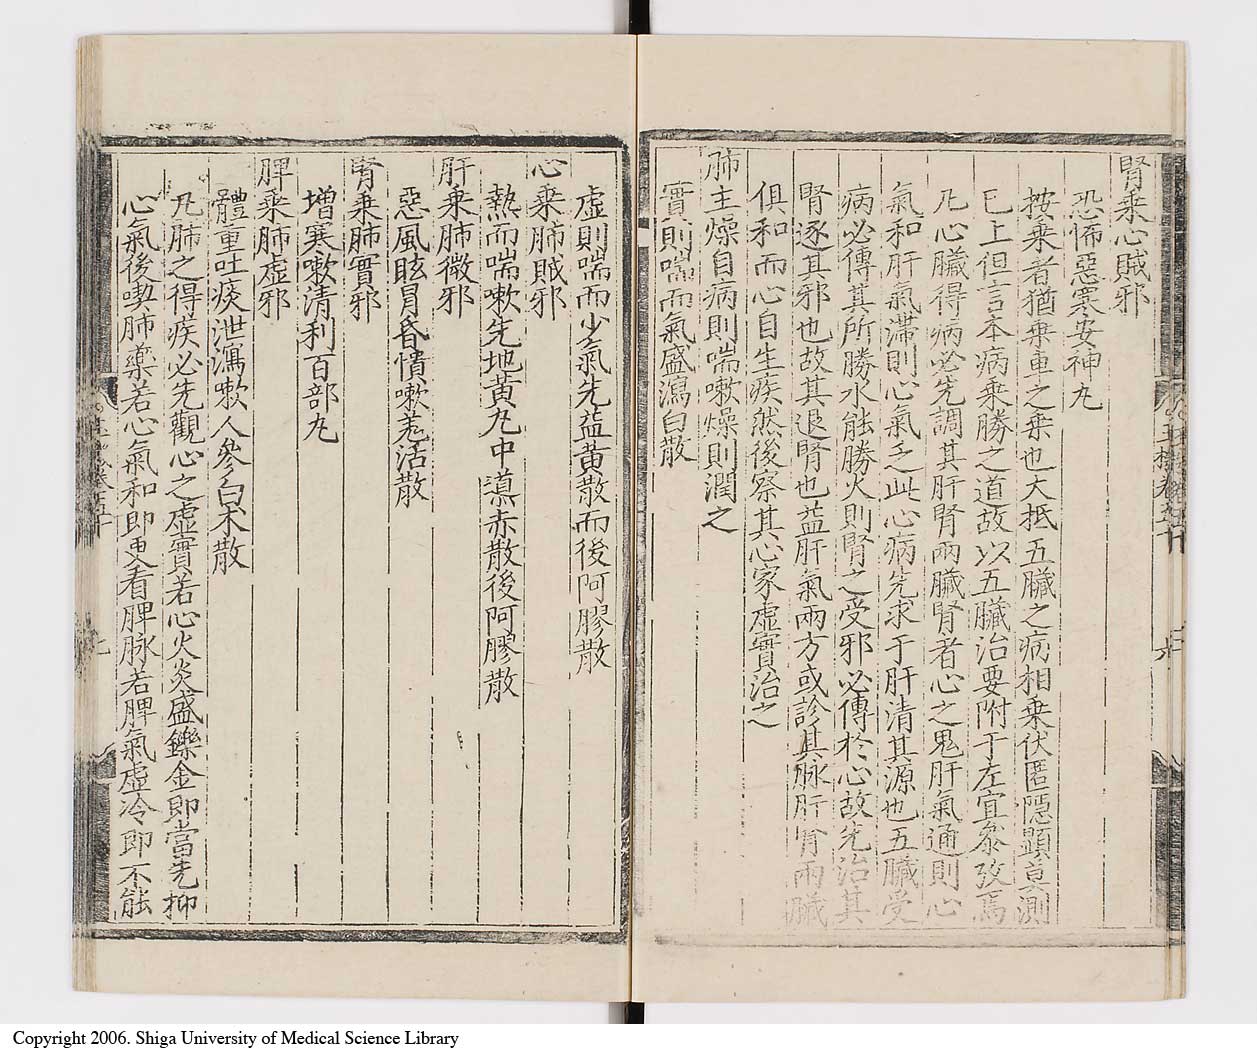 腎乗心賊邪
恐怖惡寒安神丸
按乗者猶乗車之乗也大抵五臟之病相乗伏匿隱顕莫測
已上但言本病乗勝之道故以五臟治要附于左宜叅攷焉
凡心臟得病必先調其肝腎兩臟腎者心之鬼肝氣通則心
氣和肝氣滯則心氣乏此心病先求于肝清其源也五臟受
病必傳其所勝水能勝火則腎之受邪必傳於心故先治其
腎逐其邪也故其退腎也益肝氣兩方或診其脉肝腎兩臟
俱和而心自生疾然後察其心家虚實治之
肺主燥自病則喘嗽燥則潤之
實則喘而氣盛瀉白散
虚則喘而少氣先益黃散而後阿膠散
心乗肺賊邪
熱而喘嗽先地黃丸中導赤散後阿膠散
肝乗肺微邪
惡風眩冒昏憒嗽羌活散
腎乗肺實邪
增寒嗽清利百部丸
脾乗肺虚邪
體重吐痰泄瀉嗽人參白术散
凡肺之得疾必先觀心之虚實若心火炎盛鑠金即當先抑
心氣後與肺藥若心氣和即更看脾脉若脾氣虚冷即不能
Copyright 2006. Shiga University of Medical Science Library